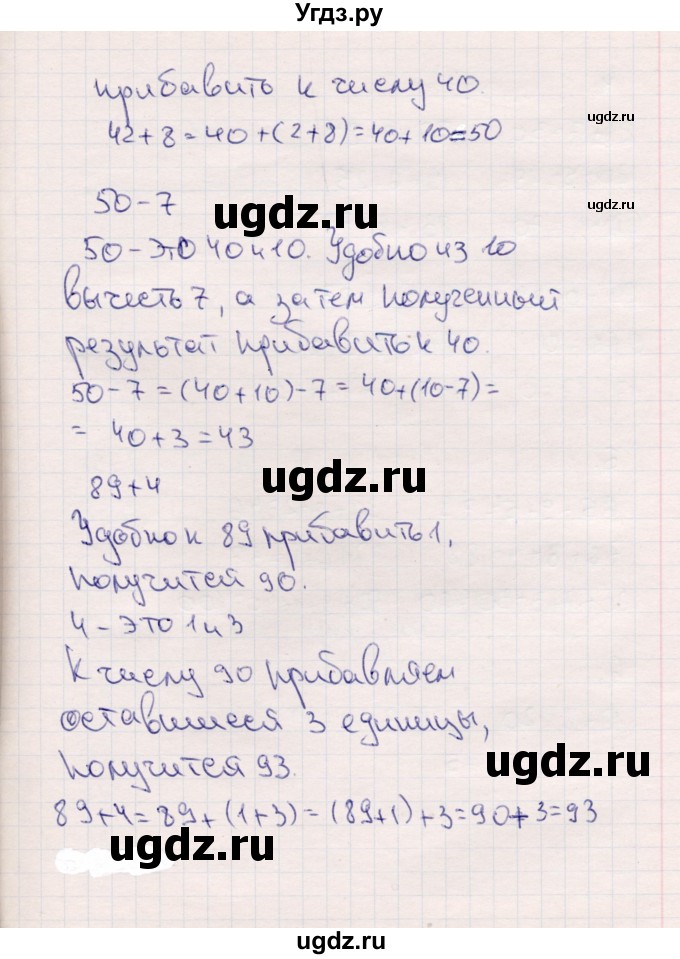 Угдз.ру
прибавить к числу 40.
ugdz.ru
42+8=40+(2+8)=40+10=50
50-7
ugdz.ru
ugdz.ru
50-это 40 и 10. Удобно из 10
вычесть 7, а затем полученный
результат прибавить к 40.
50-7=(40+10)-7=40+(10-7)=
= 40+3=43
ugdz.ru
89+4
Удобно к 89 прибавить 1,
ugdz.ru
получится 90.
4-это 1 и 3
К числу 90 прибавляем
оставшиеся 3 единицы,
ugdz.ru
получится 93.
89+4=89+(1+3)=(89+1)+3=90+3=93
ugdz.ru
ugdz.ru